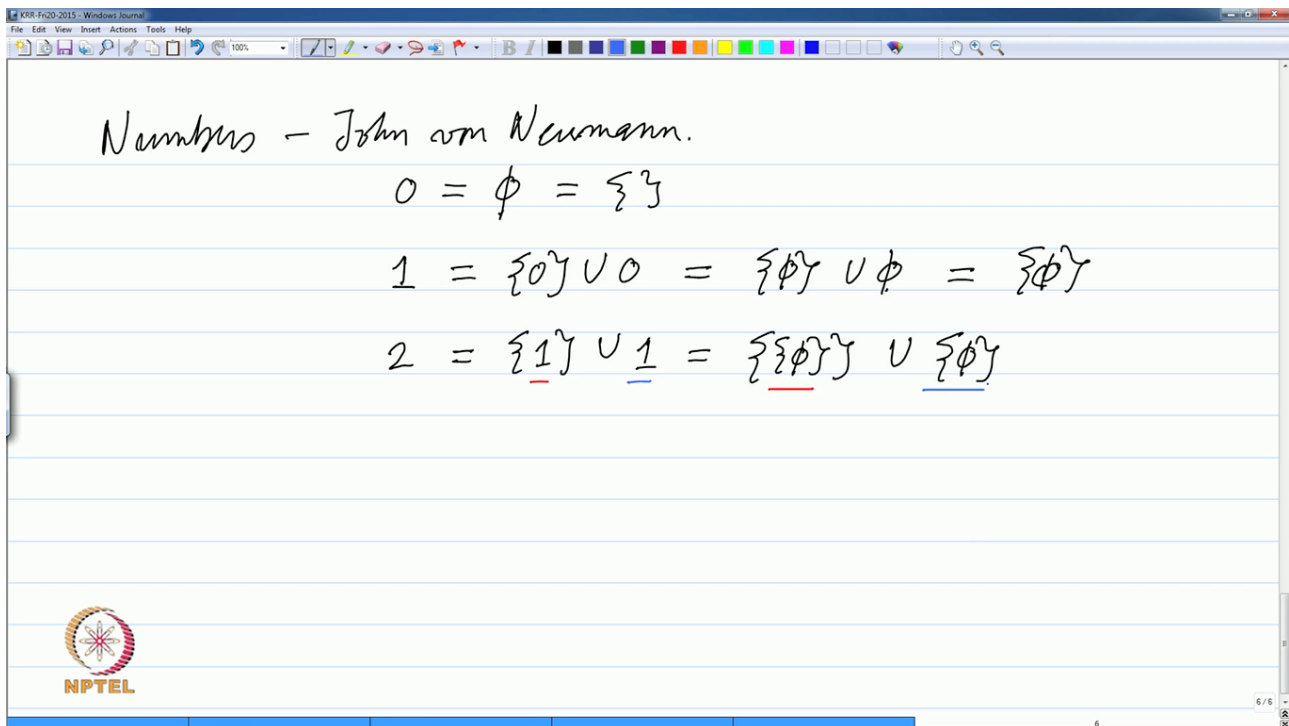 KRR-Fri20-2015 - Windows Journal
File Edit View Insert Actions Tools Help
100%
B I
Numbers – John von Neumann.
0 = ϕ = { }
1 = {0} ∪ 0 = {ϕ} ∪ ϕ = {ϕ}
2 = {1} ∪ 1 = {{ϕ}} ∪ {ϕ}
NPTEL
6/6
6